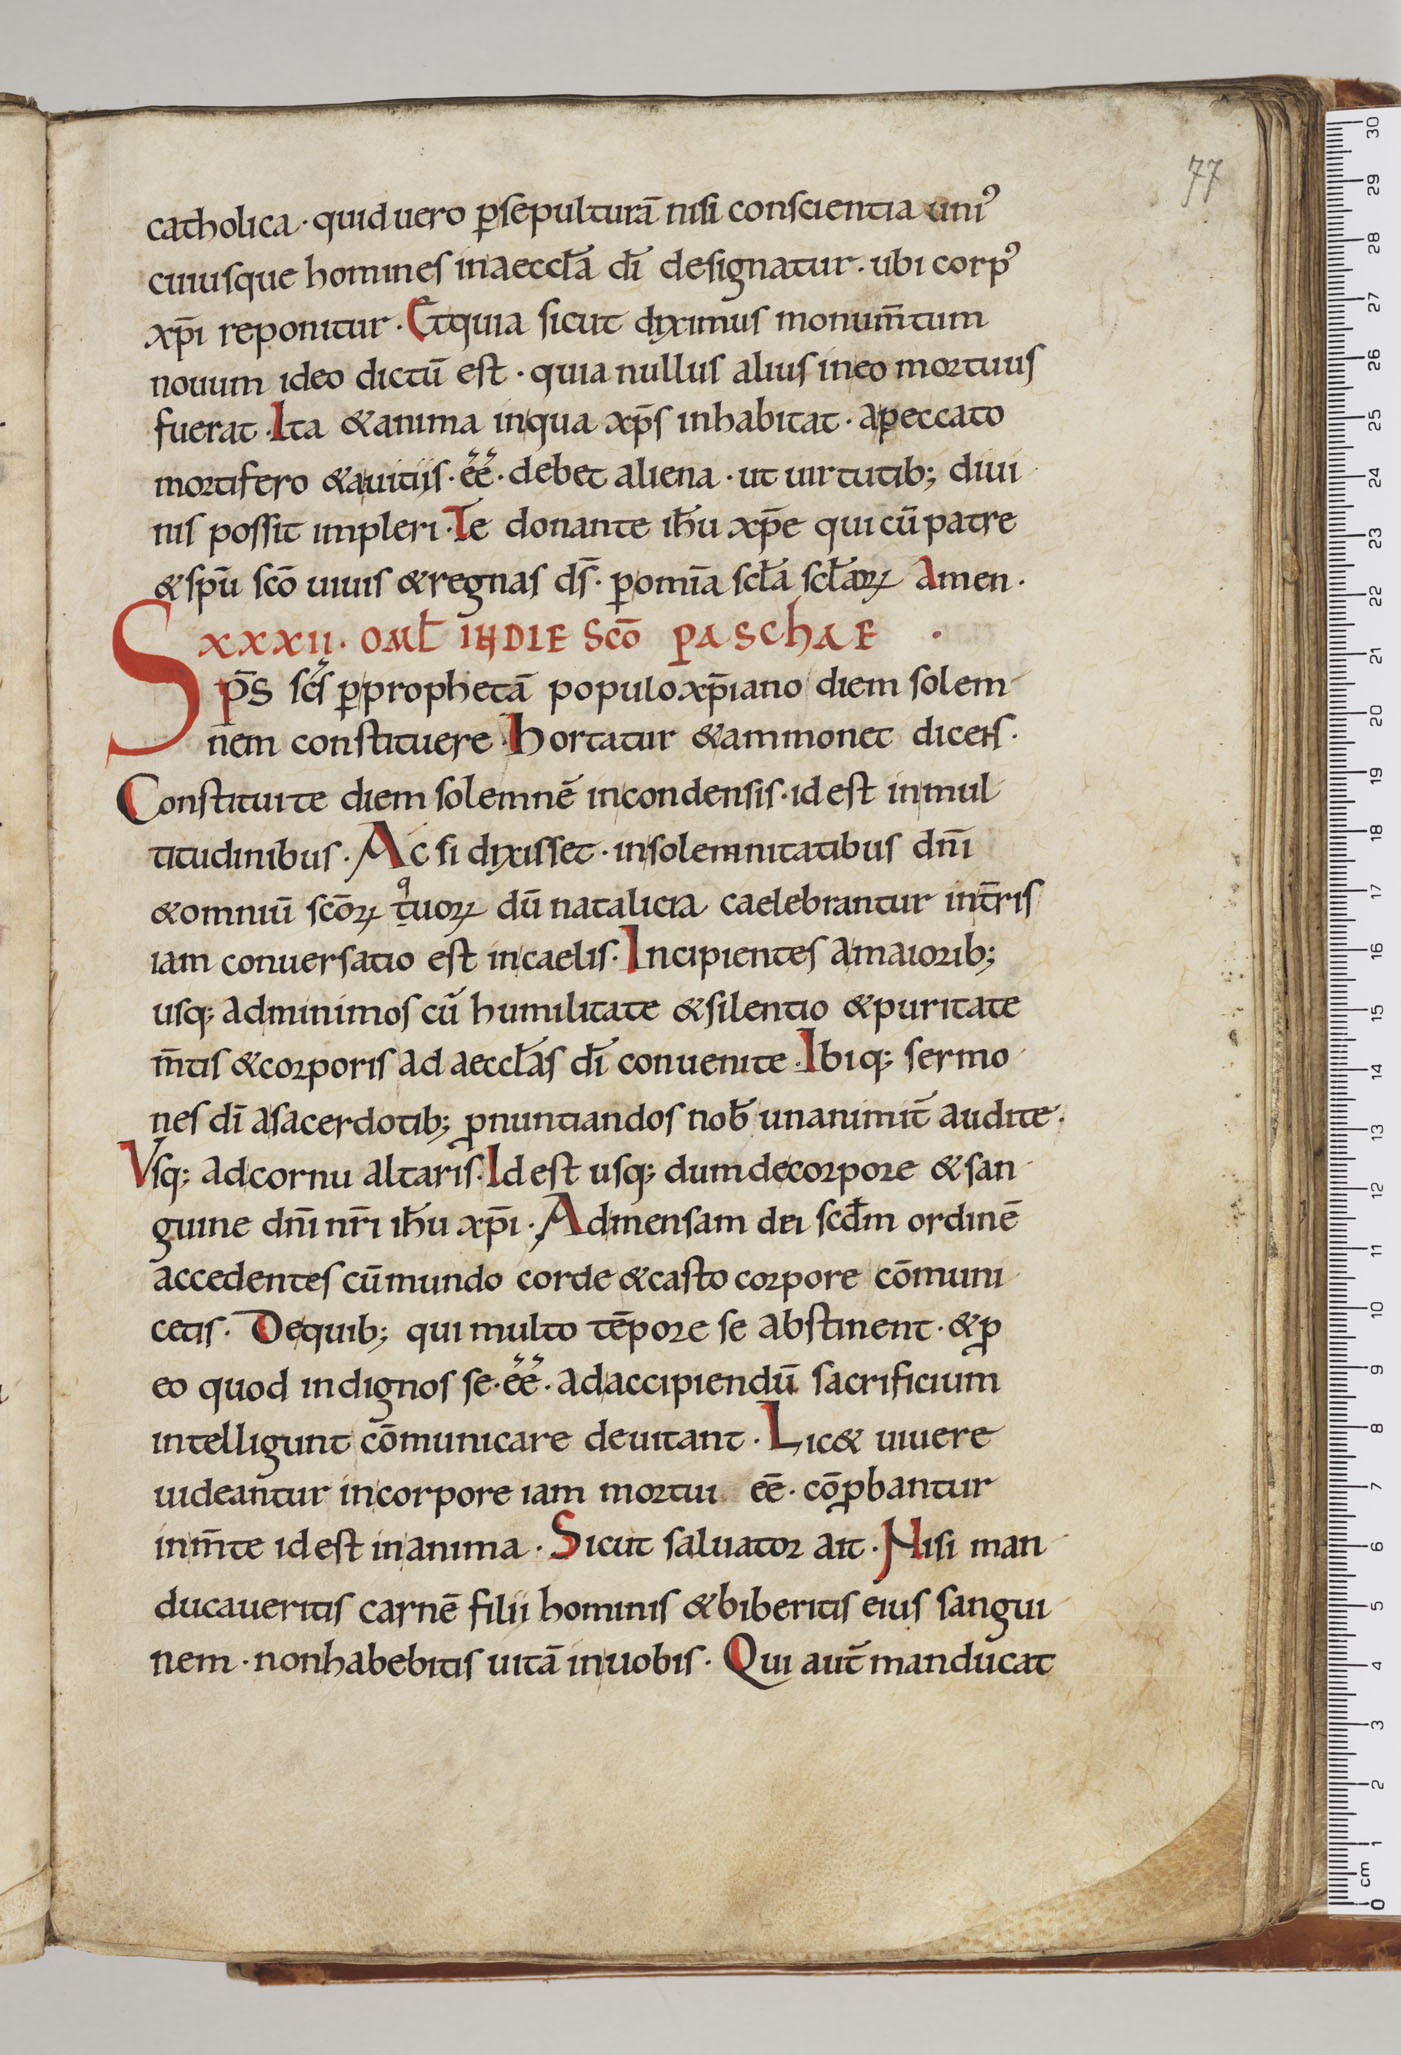 77
catholica · quid uero ꝑsepulturā nisi conscientia uniꝰ
cuiusque homines inaeccl̄a dī designatur · ubi corpꝰ
xp̄i reponitur · Et quia sicut dyximus monum̄tum
nouum ideo dictū est · quia nullus alius ineo mortuus
fuerat · Ita &anima inqua xp̄s inhabitat · apeccato
mortifero &auitiis · ēē · debet aliena · ut uirtutib; diui
nis possit impleri · Te donante ih̄u xp̄e qui cū patre
&spū scō uiuis &regnas ds̄ · ꝑomīa scl̄a scl̄aꝝ Amen ·
XXXII · OML̄ IN DIE Scō PASchAE ·
Sp̄s sc̄s ꝑprophetā populo xp̄iano diem solem
nem constituere · hortatur &ammonet dicens ·
Constituite diem solemnē incondensis · id est inmul
titudinibus · Ac si dyxisset · insolemnitatibus dn̄i
&omniū scōꝝ tuoꝝ dū natalicia caelebrantur int̄ris
iam conuersatio est incaelis · Incipientes amaiorib;
usq; adminimos cū humilitate &silentio &puritate
m̄tis &corporis ad aeccl̄as dī conuenite · Ibiq; sermo
nes dī asacerdotib; ꝓnuntiandos nob̄ unanimit̄ audite ·
Vsq; adcornu altaris · Id est usq; dum decorpore &san
guine dn̄i nr̄i ih̄u xp̄i · Admensam dei scd̄m ordinē
accedentes cū mundo corde &casto corpore cōmuni
cetis · Dequib; qui multo tēpore se abstinent · &ꝓ
eo quod indignos se · ēē · adaccipiendū sacrificium
intelligunt cōmunicare deuitant · Lic& uiuere
uideantur incorpore iam mortui ēē · cōꝓbantur
inm̄te id est inanima · Sicut saluator ait · Nisi man
ducaueritis carnē filii hominis &biberitis eius sangui
nem · nonhabebitis uitā inuobis · Qui aut̄ manducat
30
29
28
27
26
25
24
23
22
21
20
19
18
17
16
15
14
13
12
11
10
9
8
7
6
5
4
3
2
1
cm
0